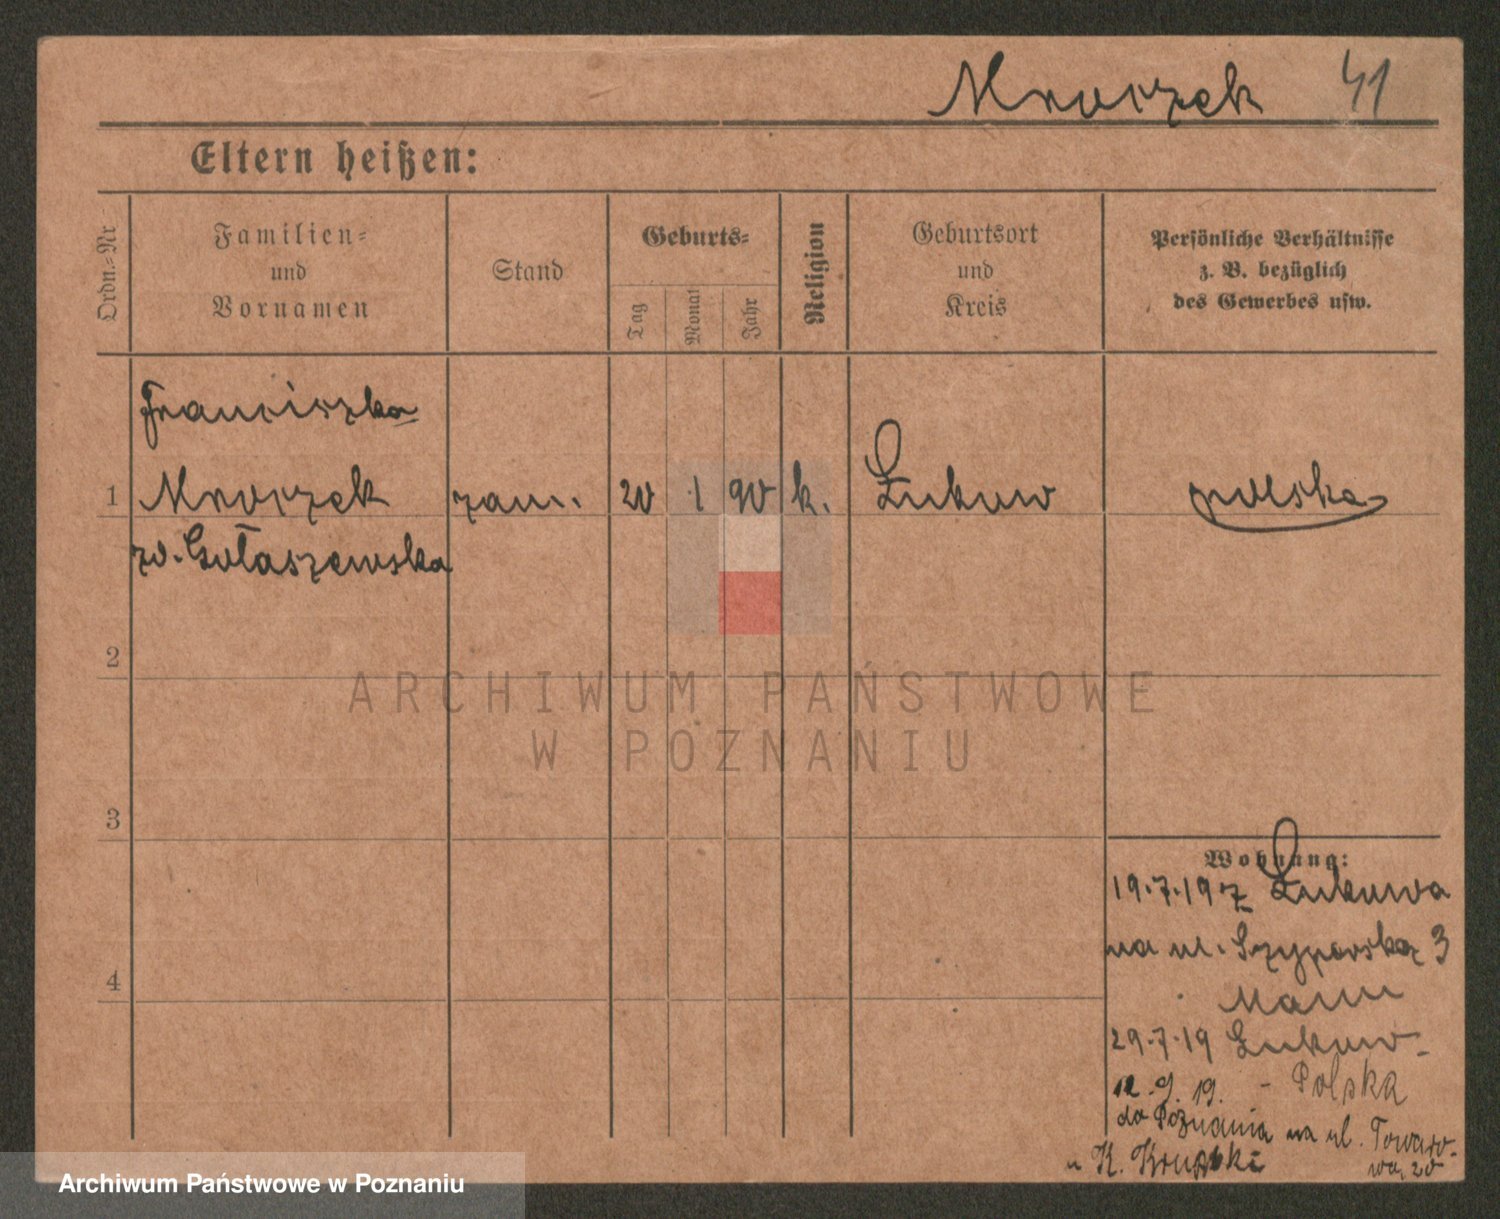 Mroczek 41
Eltern heißen:
Ordn.-Nr
Familien-
und
Vornamen
Stand
Geburts-
Tag
Monat
Jahr
Religion
Geburtsort
und
Kreis
Persönliche Verhältnisse
z. B. bezüglich
des Gewerbes usw.
Franciszka
1 Mroczek zam. 20 1 90 k. Łukow polska
zd. Gołaszewska
2
ARCHIWUM PAŃSTWOWE
W POZNANIU
3
Wohnung:
19.7.19 z Łukowa
na ul. Szyperska 3
4
Mann
29.7.19 Łukow
12.9.19. - Polska
do Poznania na ul. Towaro-
wa 20
u K. Krupski
Archiwum Państwowe w Poznaniu